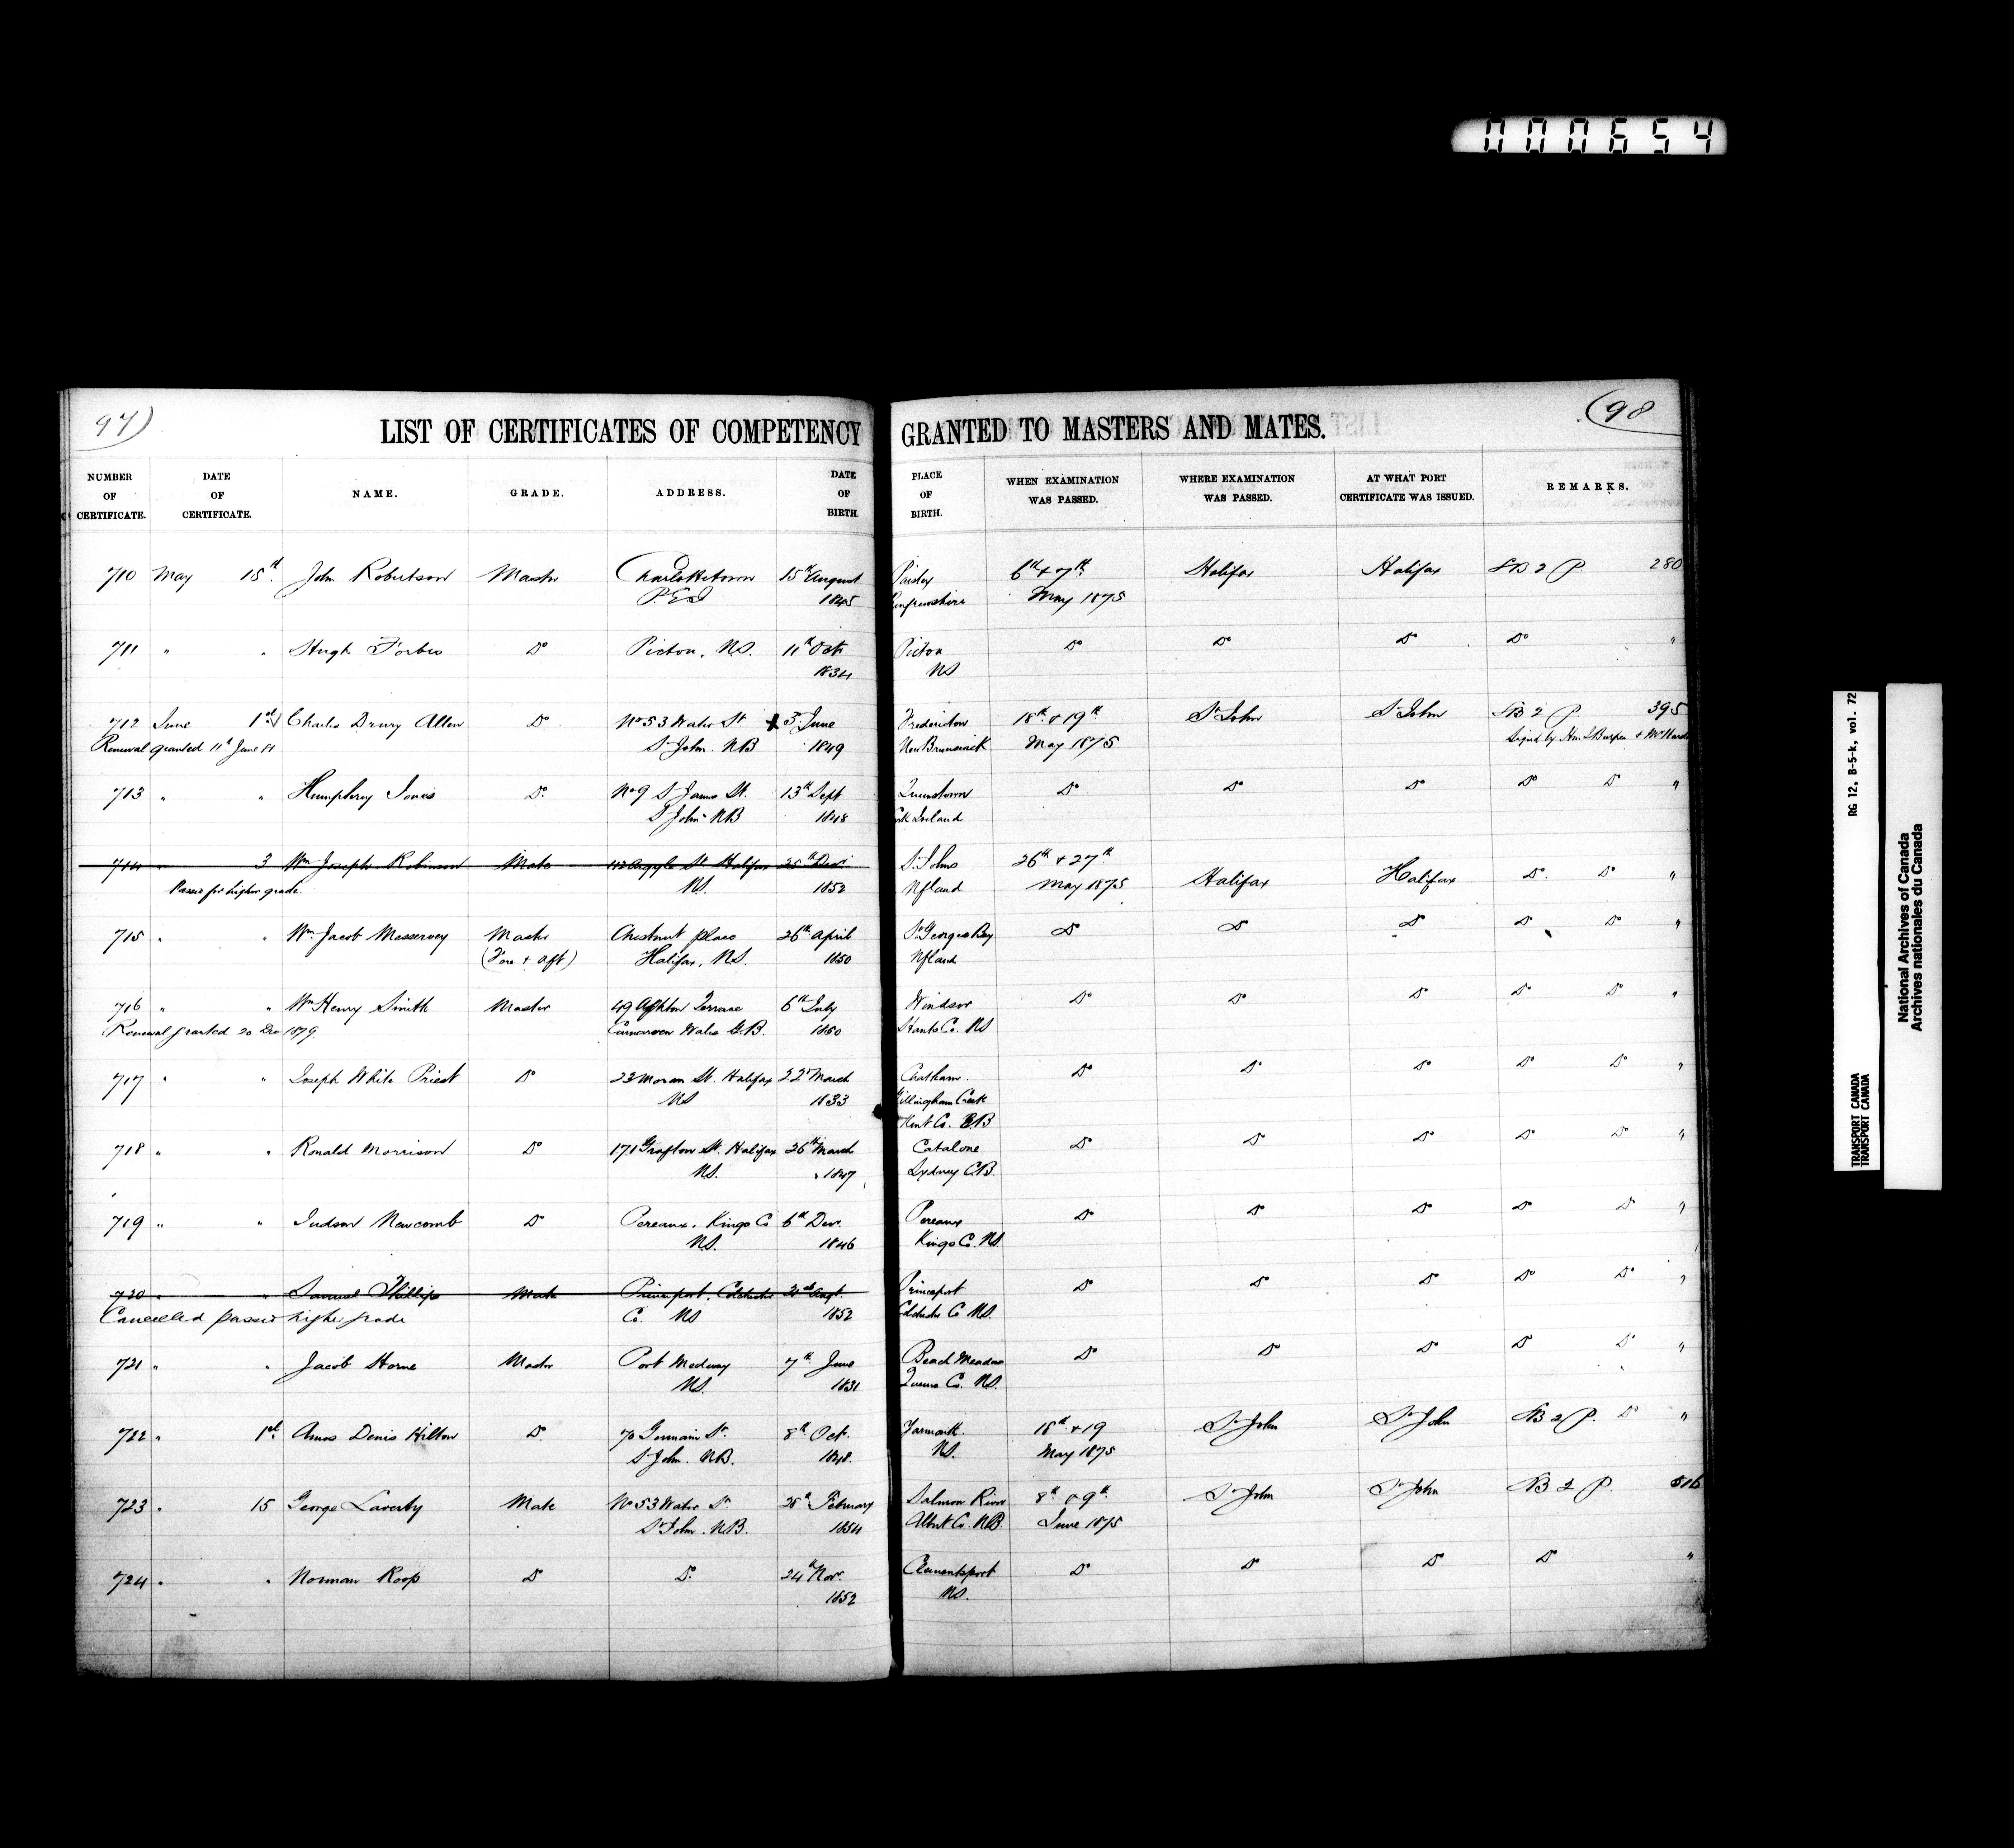 000654
97)
(98
LIST OF CERTIFICATES OF COMPETENCY GRANTED TO MASTERS AND MATES.
NUMBER OF CERTIFICATE. DATE OF CERTIFICATE. NAME. GRADE. ADDRESS. DATE OF BIRTH. PLACE OF BIRTH. WHEN EXAMINATION WAS PASSED. WHERE EXAMINATION WAS PASSED. AT WHAT PORT CERTIFICATE WAS ISSUED. REMARKS.
710 May 15th. John Robertson Master Charlottetown 15th August Paisley 6th & 7th Halifax Halifax B 2 P 280
P.E.I 1845 Renfrewshire May 1875
711 " " Hugh Forbes Do Pictou, NS. 11th Oct Pictou Do Do Do Do "
1834 NS
712 June 1st Charles Drury Allen Do No 53 Water St 3 June Fredericton 18th & 19th St John St John B 2 P. 395
Renewal granted 11th June 81 St John. NB 1849 New Brunswick May 1875 Signed by
713 " " Humphrey Jones Do No 9 St James St. 13th Sept Queenstown Do Do Do Do Do "
St John NB 1848 Cork Ireland
714 " 3 Wm Joseph Robinson Mate 112 Argyle St Halifax 25th Dec. St Johns 26th & 27th
Passed for higher grade. NS. 1852 Nfland May 1875 Halifax Halifax Do. Do "
715 " " Wm. Jacob Messervey Master Chestnut place 26th April St Georges Bay Do Do Do Do Do "
(Fore & Aft) Halifax, NS. 1850 Nfland
716 " " Wm Henry Smith Master 49 Ashton Terrace 6th July Windsor Do Do Do Do Do "
Renewal granted 20 Dec 1879. Carnarvon Wales G.B. 1850 Hants Co. NS
717 " " Joseph White Priest Do 22 Moran St. Halifax 22d March Chatham. Do Do Do Do Do "
NS 1833 Gillingham Creek
Kent Co.
718 " " Ronald Morrison Do 171 Grafton St. Halifax 26th March Catalone Do Do Do Do Do "
NS. 1847 Sydney C.B.
719 " " Judson Newcomb Do Pereaux. Kings Co 6th Dec. Pereaux Do Do Do Do Do "
NS. 1846 Kings Co. NS
720 " " Samuel Phillips Mate Princeport, Colchester Augt. Princeport Do Do Do Do Do "
Cancelled passed higher grade Co. NS 1852 Colchester Co NS.
721 " " Jacob Horne Master Port Medway 7th June Beach Meadow Do Do Do Do Do "
NS. 1831 Queens Co. NS.
722 " 1st Amos Denis Hilton Do 70 Germain St. 8th Oct. Yarmouth. 18th & 19 St John St John B 2 P. Do "
St John. NB. 1848. NS. May 1875
723 " 15 George Laverty Mate No 53 Water St 28th February Salmon River 8th & 9th St John St John B 2 P. 516
St John. NB. 1854 Albert Co. NB. June 1875
724 " " Norman Roop Do Do 24th Nov. Clementsport Do Do Do Do "
1852 NS.
RG 12, B-5-k, vol. 72
TRANSPORT CANADA
TRANSPORT CANADA
National Archives of Canada
Archives nationales du Canada